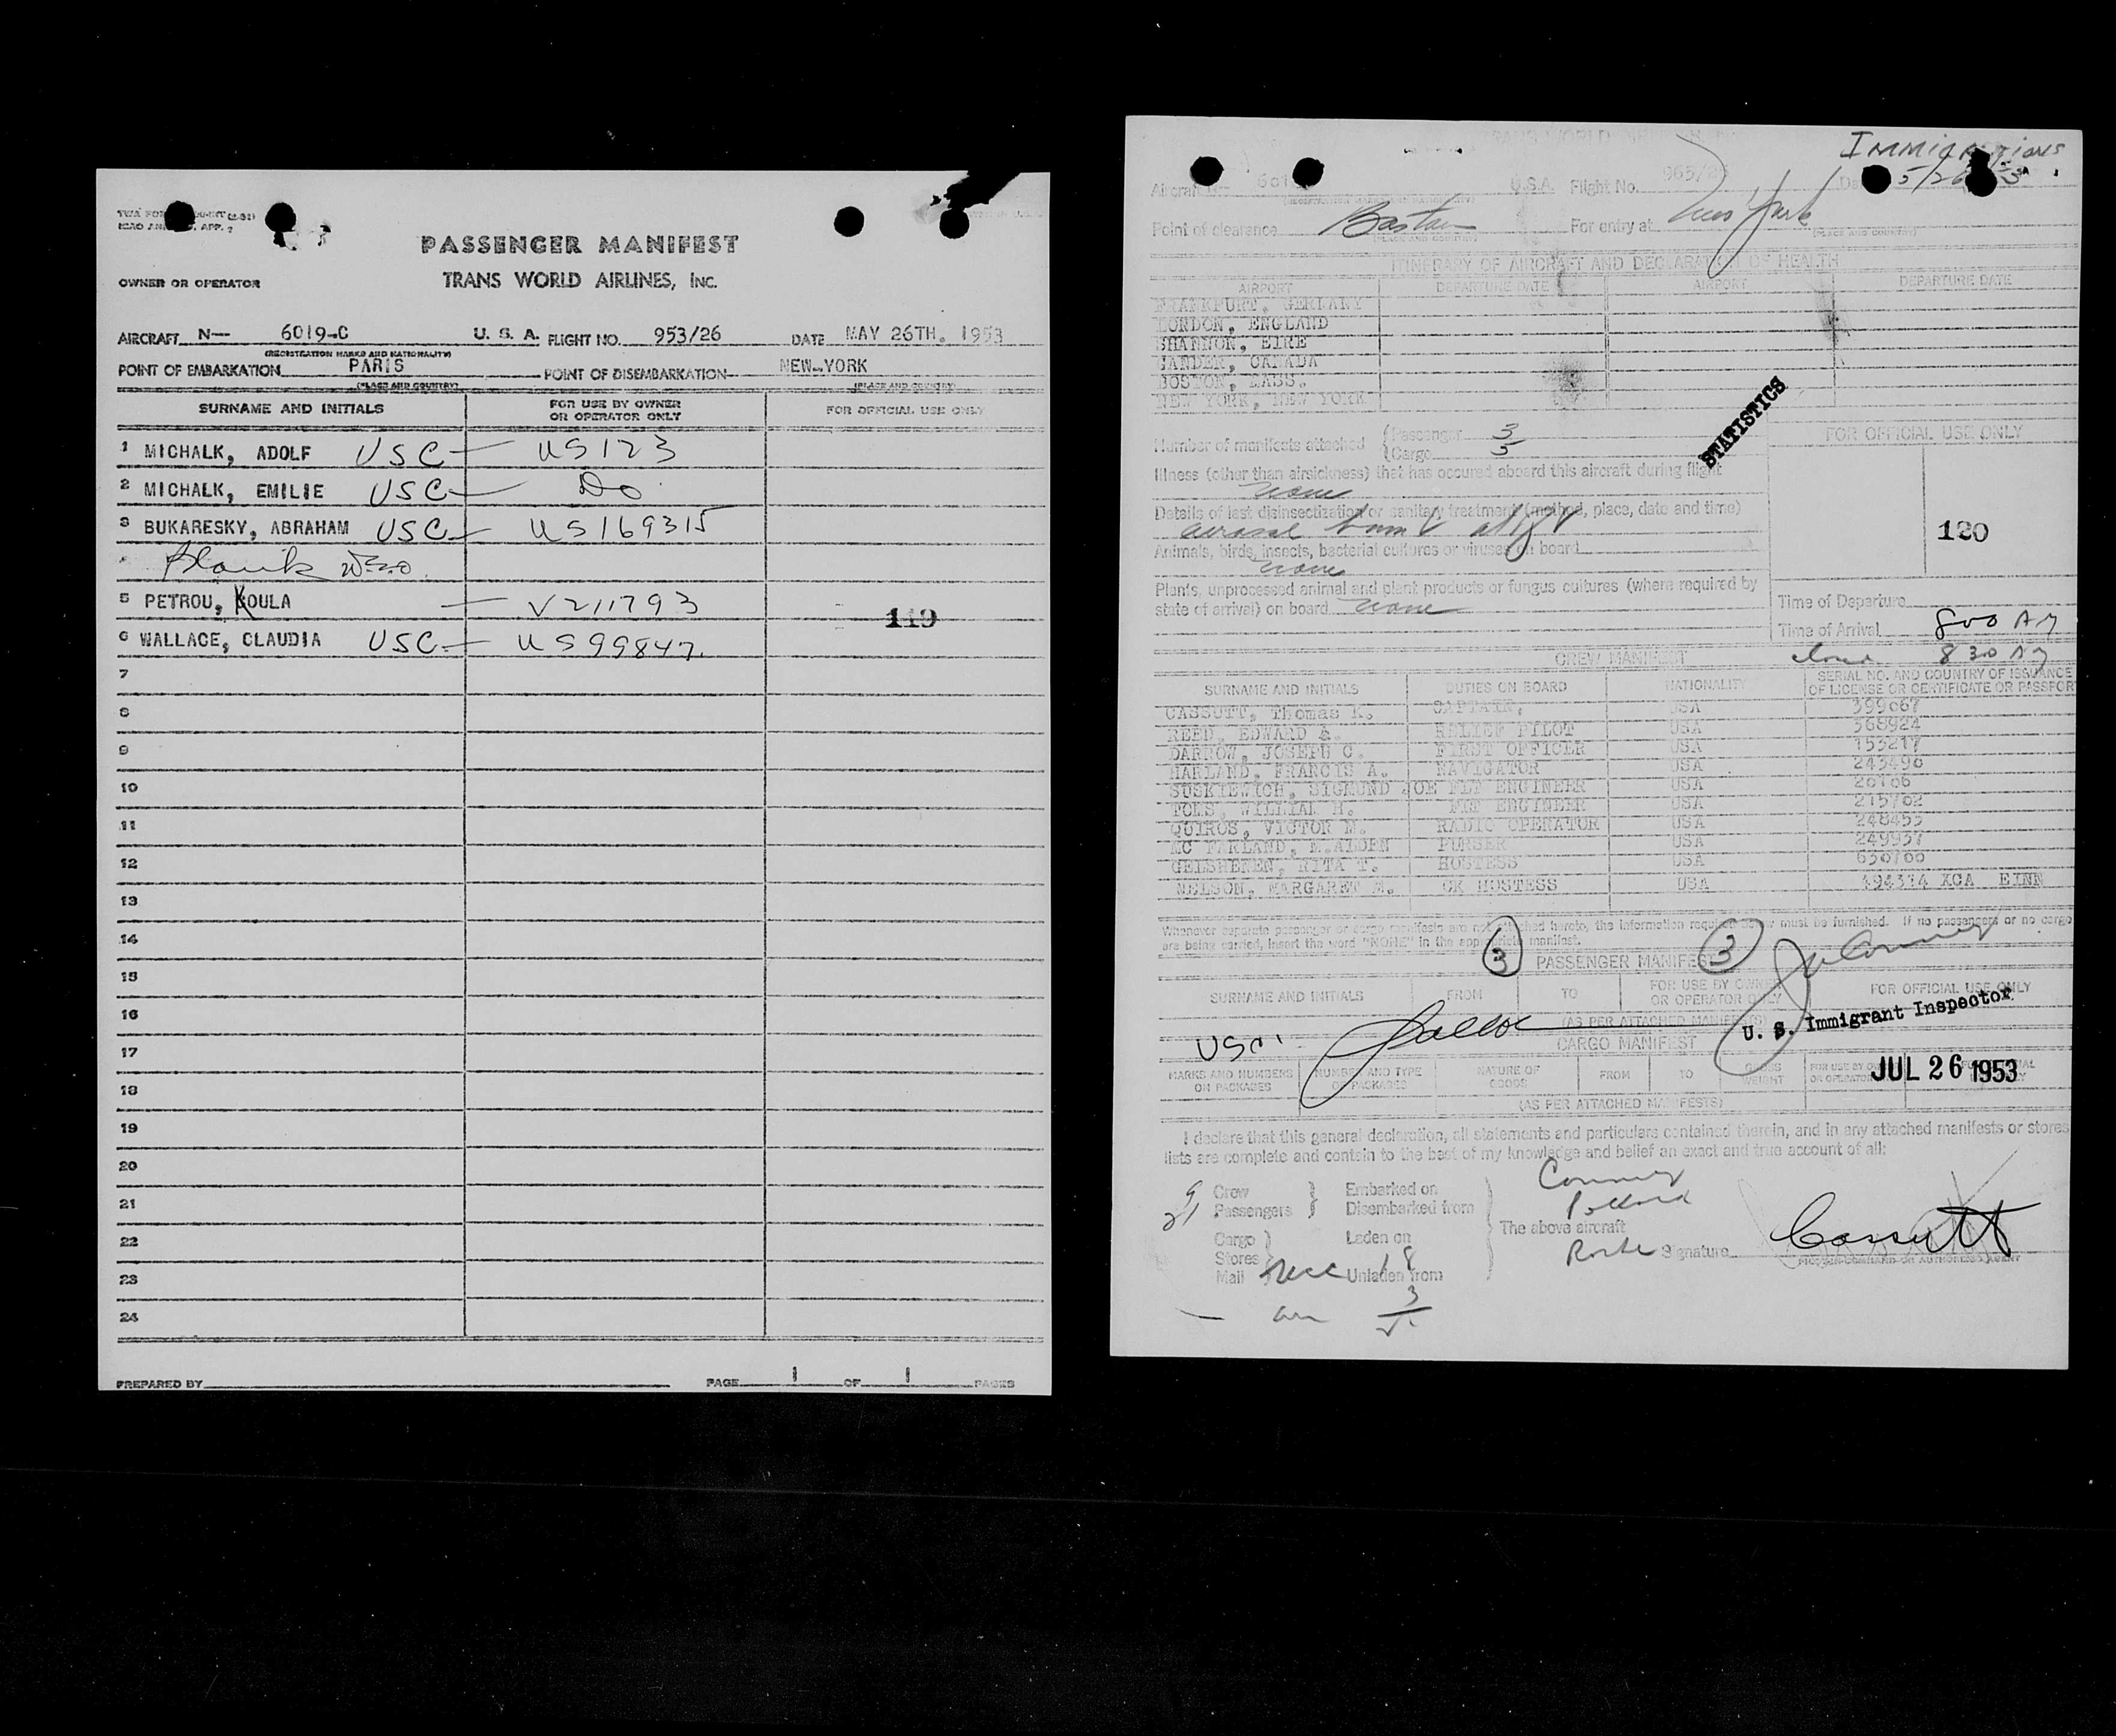 PASSENGER MANIFEST
OWNER OR OPERATOR TRANS WORLD AIRLINES, INC.
AIRCRAFT N— 6019-C U. S. A. FLIGHT NO. 953/26 DATE MAY 26TH. 1953
(REGISTRATION MARKS AND NATIONALITY)
POINT OF EMBARKATION PARIS POINT OF DISEMBARKATION NEW-YORK
(PLACE AND COUNTRY) (PLACE AND COUNTRY)
SURNAME AND INITIALS FOR USE BY OWNER OR OPERATOR ONLY FOR OFFICIAL USE ONLY
1 MICHALK, ADOLF USC — US 123
2 MICHALK, EMILIE USC — Do
3 BUKARESKY, ABRAHAM USC — US 169315
Blank
5 PETROU, KOULA — V211793
119
6 WALLACE, CLAUDIA USC — US 99847.
7
8
9
10
11
12
13
14
15
16
17
18
19
20
21
22
23
24
PREPARED BY PAGE 1 OF 1 PAGES
Immigrations
Aircraft U.S.A. Flight No.
Point of clearance Boston For entry at New York
(PLACE AND COUNTRY) (PLACE AND COUNTRY)
ITINERARY OF AIRCRAFT AND DECLARATION OF HEALTH
AIRPORT DEPARTURE DATE AIRPORT DEPARTURE DATE
FRANKFURT, GERMANY
LONDON, ENGLAND
SHANNON, EIRE
GANDER, CANADA
BOSTON, MASS.
NEW YORK, NEW YORK
STATISTICS
Number of manifests attached Passenger 3
Cargo 3
FOR OFFICIAL USE ONLY
Illness (other than airsickness) that has occured aboard this aircraft during flight
none
Details of last disinsectization or sanitary treatment (method, place, date and time)
120
Animals, birds, insects, bacterial cultures or viruses on board
none
Plants, unprocessed animal and plant products or fungus cultures (where required by
state of arrival) on board none
Time of Departure
Time of Arrival 800 AM
830 AM
CREW MANIFEST
SURNAME AND INITIALS DUTIES ON BOARD NATIONALITY SERIAL NO. AND COUNTRY OF ISSUANCE OF LICENSE OR CERTIFICATE OR PASSPOR
CASSUTT, Thomas K. CAPTAIN, USA 399067
REED, EDWARD RELIEF PILOT USA 368924
DARROW, JOSEPH C. FIRST OFFICER USA 153217
HARLAND, FRANCIS A. NAVIGATOR USA 243490
SUSKIEWICH, SIGMUND JOE FLT ENGINEER USA 20106
WILLIAM H. FLT ENGINEER USA 215702
QUIROS, VICTOR M. RADIO OPERATOR USA 248453
MC FARLAND, M.ALDEN PURSER USA 249937
RITA T. HOSTESS USA 630700
NELSON, MARGARET M. CK HOSTESS USA XCA EINN
Whenever separate passenger or cargo manifests are not attached hereto, the information required below must be furnished. If no passengers or no cargo
are being carried, insert the word "NONE" in the appropriate manifest.
3 PASSENGER MANIFEST 3
SURNAME AND INITIALS FROM TO FOR USE BY OWNER OR OPERATOR ONLY FOR OFFICIAL USE ONLY
(AS PER ATTACHED MANIFESTS)
U. S. Immigrant Inspector
CARGO MANIFEST
MARKS AND NUMBERS ON PACKAGES NUMBER AND TYPE OF PACKAGES NATURE OF GOODS FROM TO GROSS WEIGHT
JUL 26 1953
(AS PER ATTACHED MANIFESTS)
I declare that this general declaration, all statements and particulars contained therein, and in any attached manifests or stores
lists are complete and contain to the best of my knowledge and belief an exact and true account of all:
9 Crew Embarked on
21 Passengers Disembarked from
The above aircraft
Cargo Laden on
Stores Signature Cassutt
Mail Unladen from